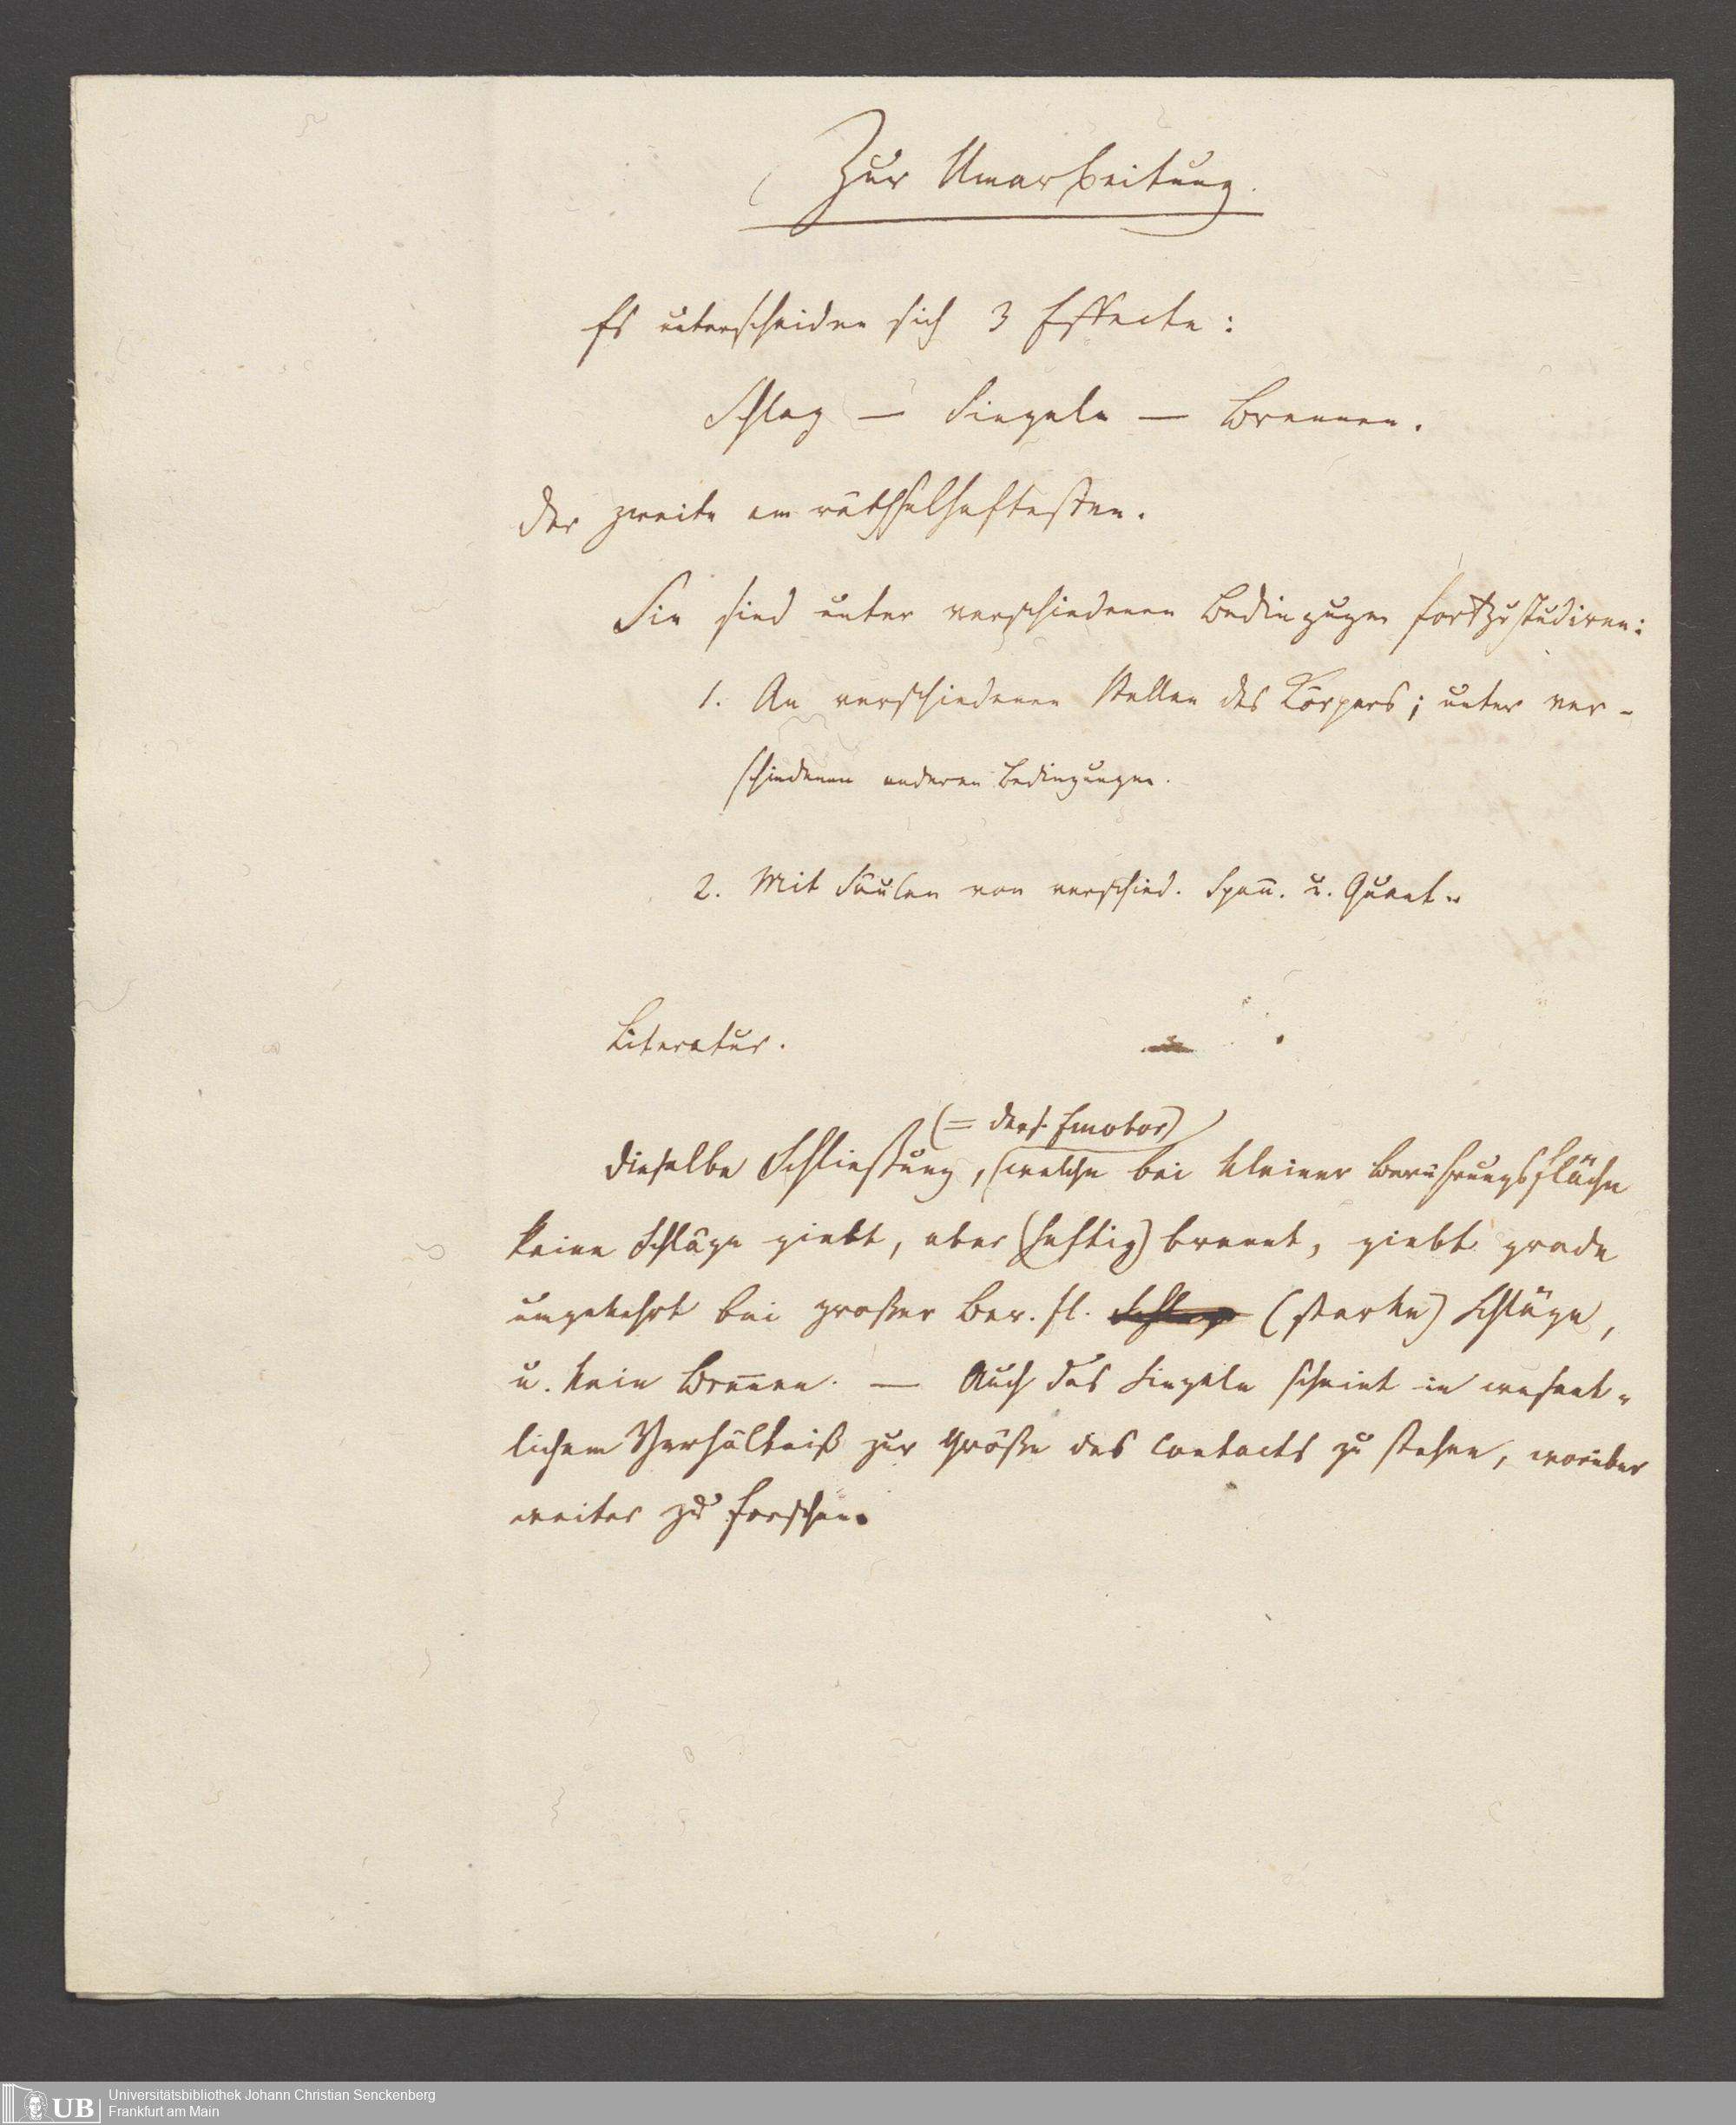 Zur Umarbeitung.
Es unterscheiden sich 3 Effecte:
Schlag — Siegeln — Brennen.
Der zweite am räthselhaftesten.
Sie sind unter verschiedenen Bedingugen fortzustudiren:
1. An verschiedenen Stellen des Körpers; unter ver-
schiedenen anderen Bedingungen.
2. Mit Säulen von verschied. Span̅. u. Quant..
Literatur.
(= ders. Emotor)
Dieselbe Schließung, (welche bei kleiner Berührungsfläche
keine Schläge giebt, aber (heftig) brennt, giebt grade
umgekehrt bei großer Ber. fl. Schläge (starke) Schläge,
u. kein Bren̅en. — Auch das Siegeln scheint in wesent-
lichem Verhältniß zur Größe des Contacts zu stehen, worüber
weiter zu forschen.
Universitätsbibliothek Johann Christian Senckenberg
Frankfurt am Main
UB